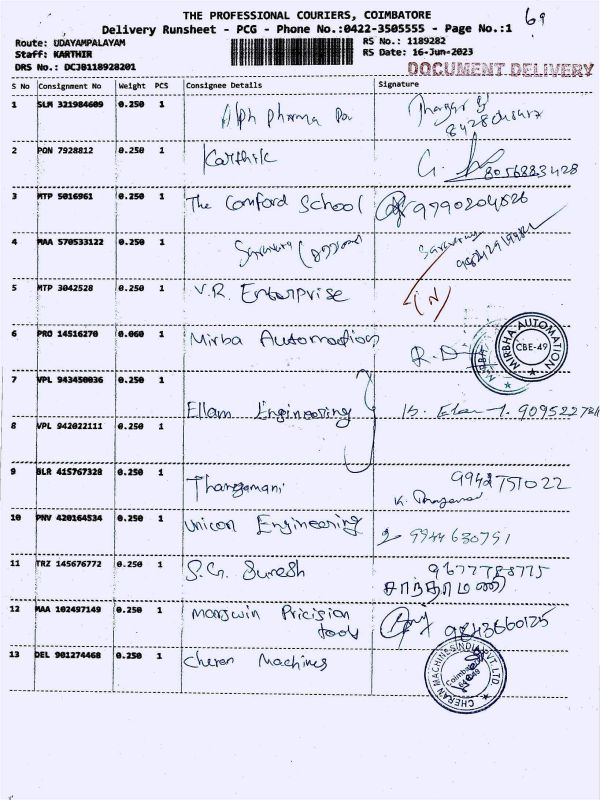 THE PROFESSIONAL COURIERS, COIMBATORE
69
Delivery Runsheet - PCG - Phone No.:0422-3505555 - Page No.:1
Route: UDAYAMPALAYAM
RS No.: 1189282
Staff: KARTHIR
RS Date: 16-Jun-2023
DRS No.: DCJ0118928201
DOCUMENT DELIVERY
S No Consignment No Weight PCS Consignee Details Signature
1 SLM 321984609 0.250 1 Alph Pharma
2 PON 7928812 0.250 1 Karthik
8056883428
3 MTP 5016961 0.250 1 The Comford School 9790204826
4 MAA 570533122 0.250 1 Saravana
5 MTP 3042528 0.250 1 V.R. Enterprise (N)
6 PRO 14516270 0.060 1 Mirba Automation R.D
MIRBHA AUTOMATION
CBE-49
MIRBA
7 VPL 943450036 0.250 1
Ellam Engineering
8 VPL 942022111 0.250 1
9 BLR 415767328 0.250 1 Thangamani 9942751022
K. Thangamani
10 PNV 420164534 0.250 1 Unicon Engineering 9944630791
11 TRZ 145676772 0.250 1 S.G. Suresh 9677788775
சாந்தாமணி
12 MAA 102497149 0.250 1 Monswin Pricision
tools 9843660125
13 DEL 901274468 0.250 1 Cheran Machines
CHERAN MACHINES INDIA PVT. LTD.
Coimbatore